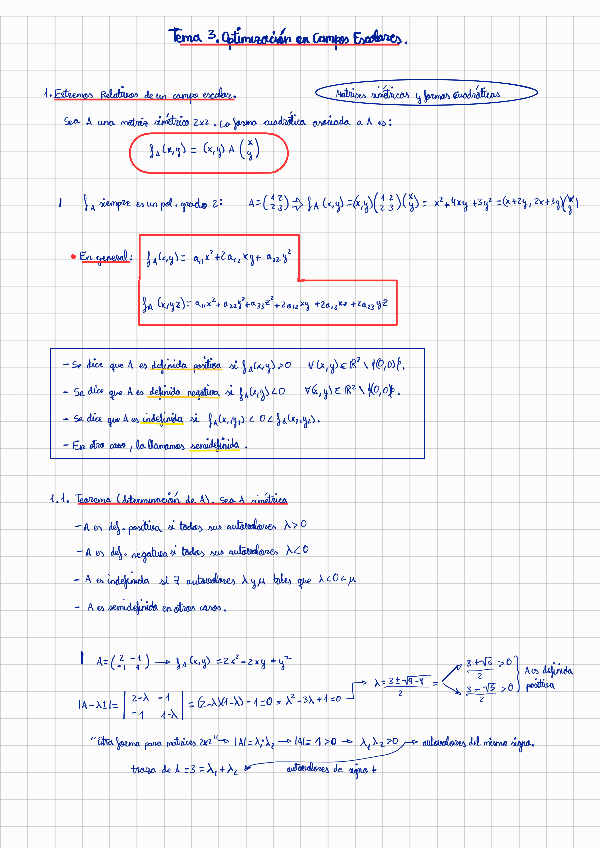 Tema 3. Optimización en Campos Escalares.
1. Extremos Relativos de un campo escalar.
Matrices simétricas y formas cuadráticas
Sea A una matriz simétrica 2x2. La forma cuadrática asociada a A es:
f_A(x,y) = (x,y) A (x y)
f_A siempre es un pol. grado 2: A = (1 2 2 3) ⇒ f_A(x,y) = (x,y) (1 2 2 3) (x y) = x² + 4xy + 3y² = (x+2y, 2x+3y) (x y)
• En general: f_A(x,y) = a₁₁x² + 2a₁₂xy + a₂₂y²
f_A(x,y,z) = a₁₁x² + a₂₂y² + a₃₃z² + 2a₁₂xy + 2a₁₃xz + 2a₂₃yz
- Se dice que A es definida positiva si f_A(x,y) > 0 ∀(x,y) ∈ ℝ² \ {(0,0)}.
- Se dice que A es definida negativa si f_A(x,y) < 0 ∀(x,y) ∈ ℝ² \ {(0,0)}.
- Se dice que A es indefinida si f_A(x₁,y₁) < 0 < f_A(x₂,y₂).
- En otro caso, la llamamos semidefinida.
1.1. Teorema (determinación de A). Sea A simétrica
- A es def. positiva si todos sus autovalores λ > 0
- A es def. negativa si todos sus autovalores λ < 0
- A es indefinida si ∃ autovalores λ y μ tales que λ < 0 < μ
- A es semidefinida en otros casos.
A = (2 -1 -1 1) → f_A(x,y) = 2x² - 2xy + y²
|A-λI| = |2-λ -1 -1 1-λ| = (2-λ)(1-λ) - 1 = 0 = λ² - 3λ + 1 = 0 → λ = (3±√9-4)/2 = (3+√5)/2 > 0 (3-√5)/2 > 0 } A es definida positiva
"Otra forma para matrices 2x2" → |A| = λ₁·λ₂ → |A| = 1 > 0 → λ₁λ₂ > 0 → autovalores del mismo signo.
traza de A = 3 = λ₁ + λ₂ autovalores de signo +